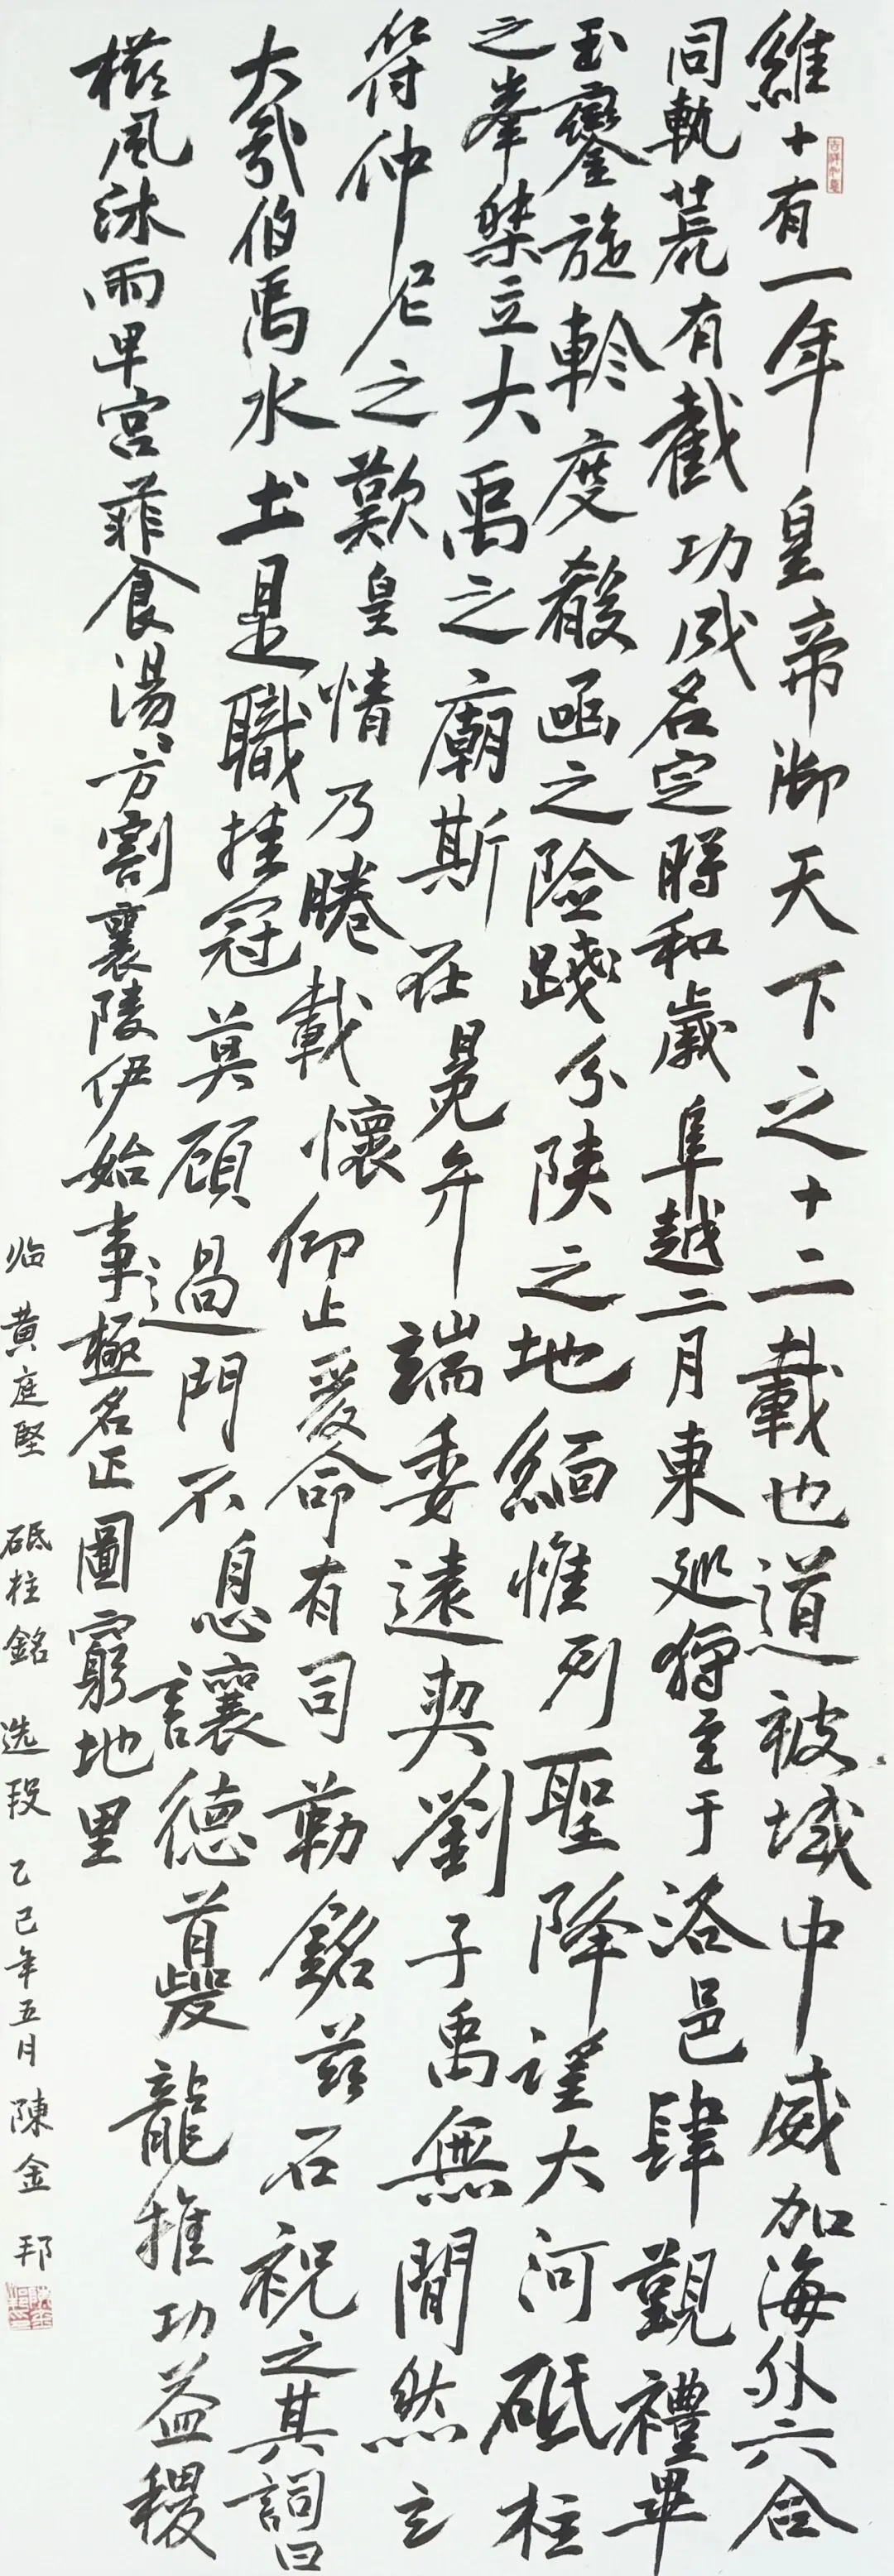 維十有一年皇帝御天下之十二載也道被域中威加海外六合
同軌荒有截功成名定時和歲阜越二月東巡狩至于洛邑肆覲禮畢
玉鑾旋軫度殽函之險踐分陝之地緬惟列聖降望大河砥柱
之峯桀立大禹之廟斯在冕弁端委遠契劉子禹無間然玄
符仲尼之歎皇情乃睠載懷仰止爰命有司勒銘兹石祝之其詞曰
大哉伯禹水土是職挂冠莫顧過門不息讓德夔龍推功益稷
櫛風沐雨卑宮菲食湯湯方割襄陵伊始事極名正圖窮地里
临黄庭堅 砥柱銘 选段 乙巳年五月 陳金邦
吉祥如意